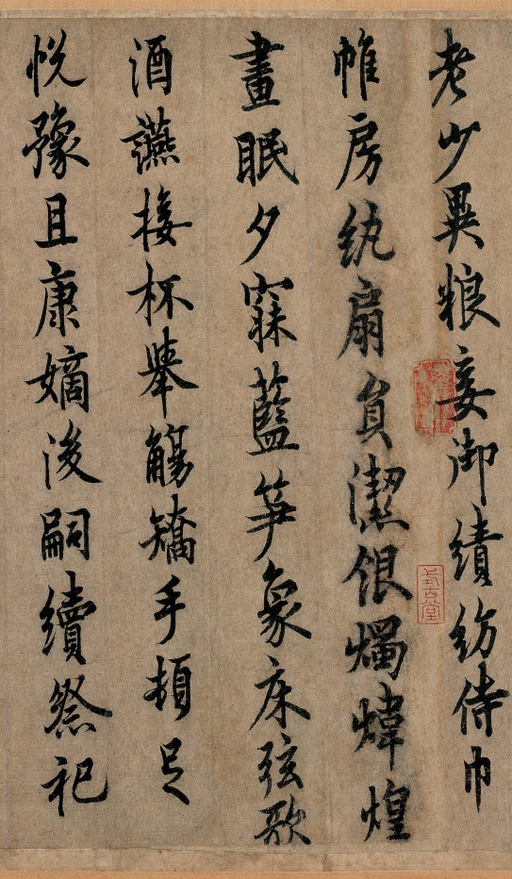 老少異粮妾御績紡侍巾
帷房紈扇員潔銀燭煒煌
晝眠夕寐藍笋象床弦歌
酒讌接杯舉觴矯手頓足
悅豫且康嫡後嗣續祭祀
式古堂